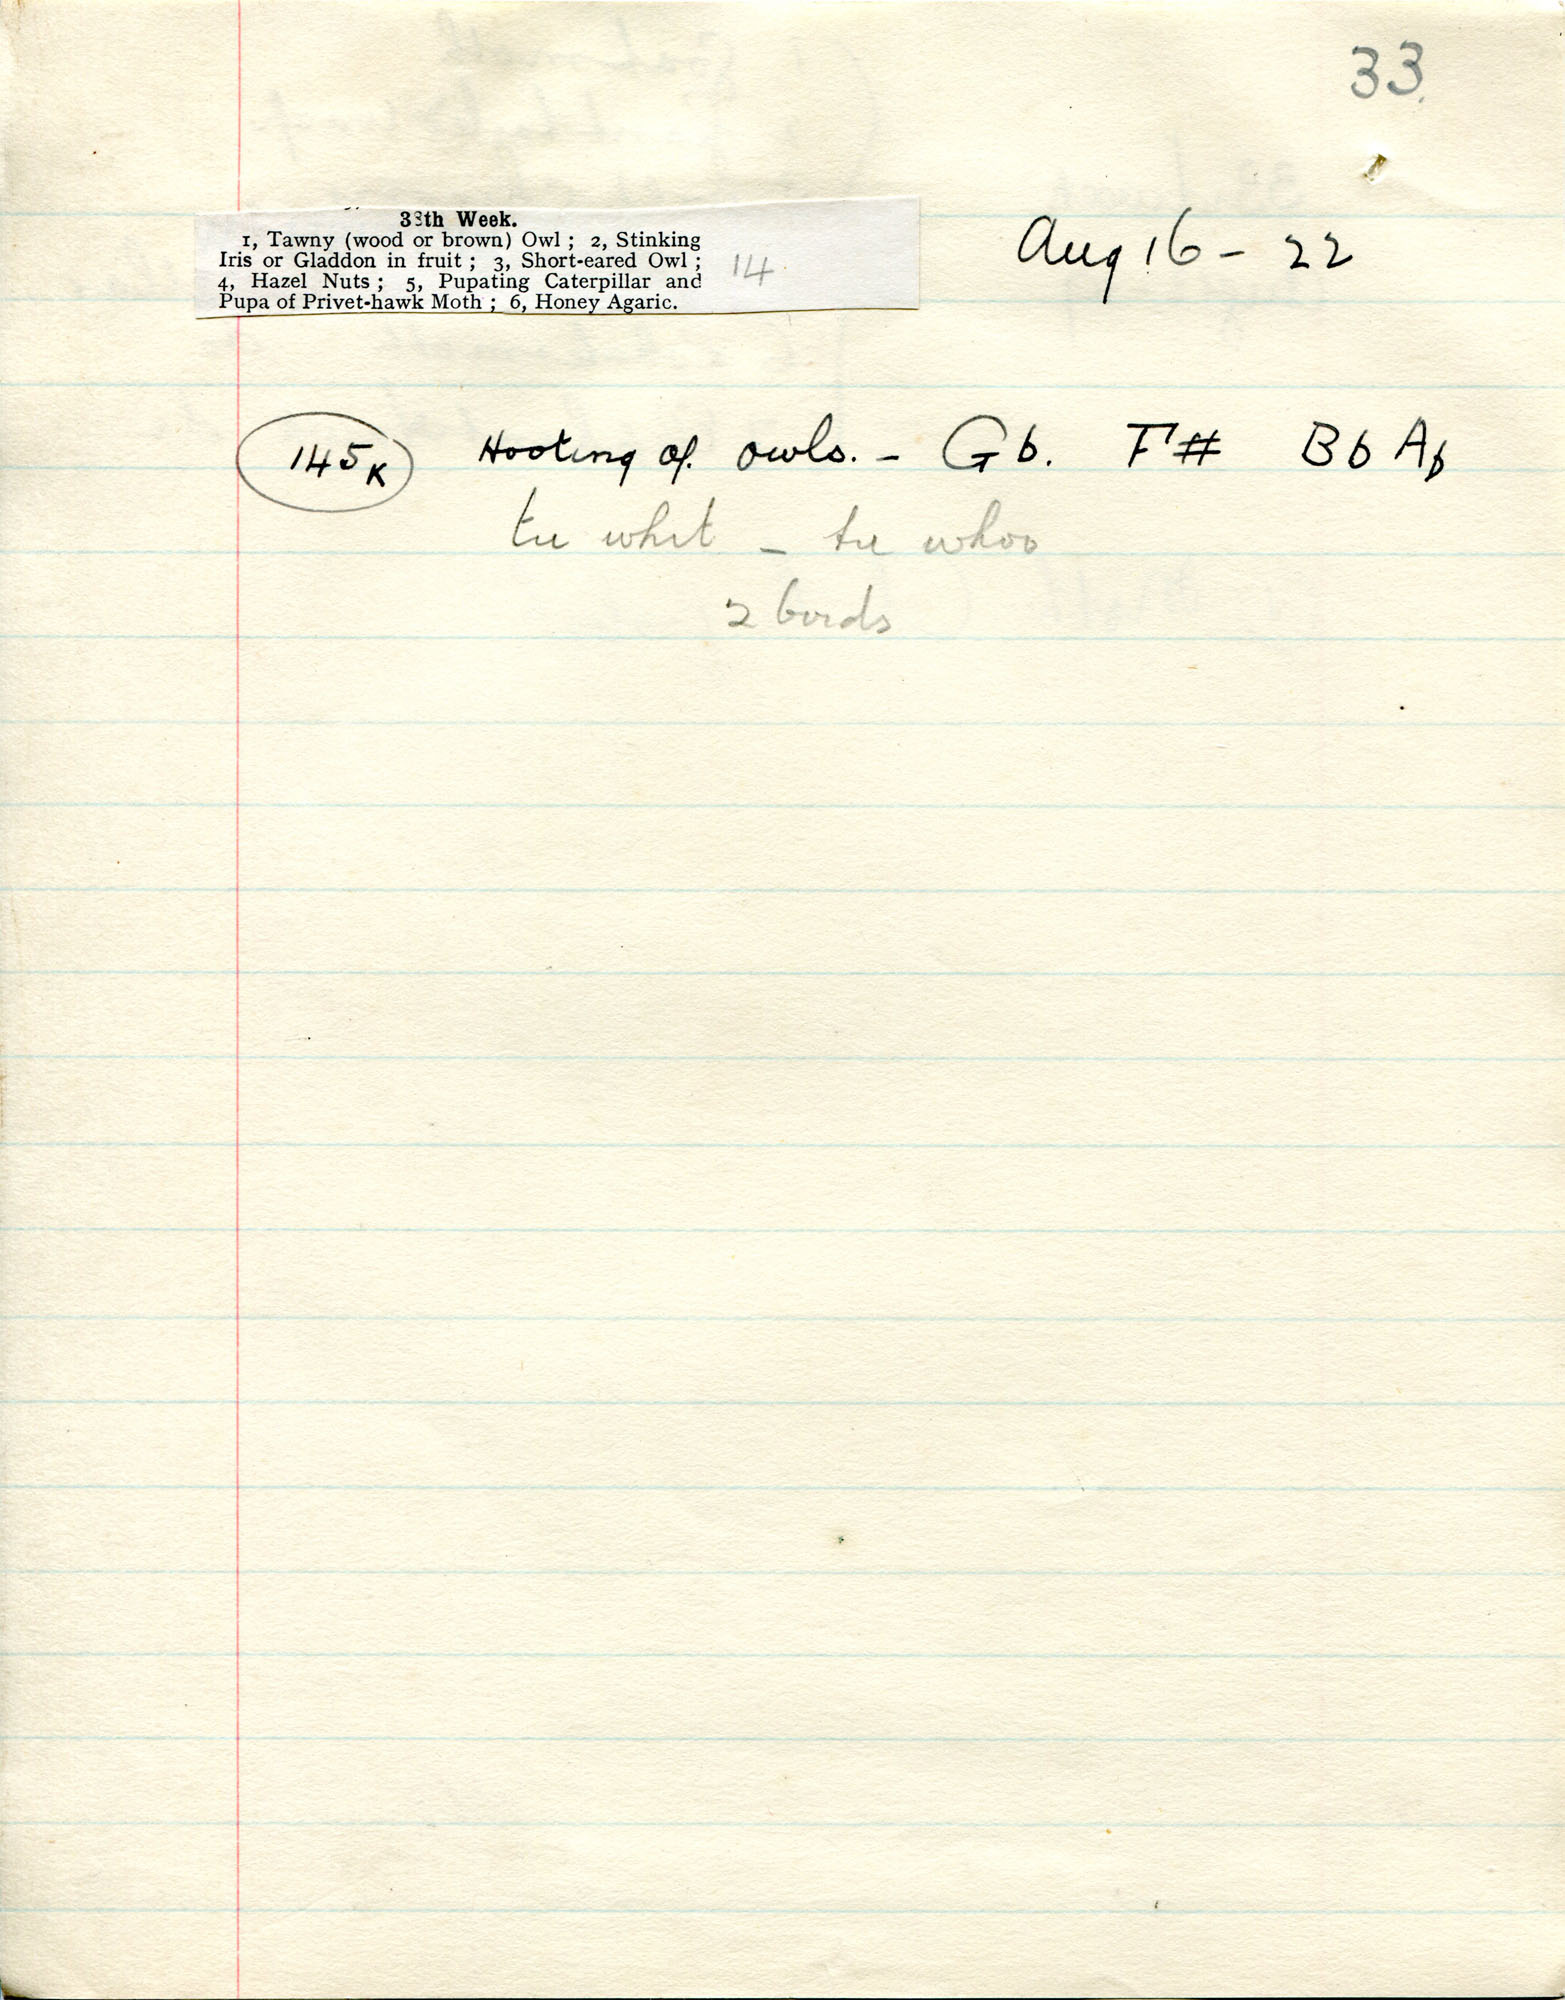 33
33th Week.
1, Tawny (wood or brown) Owl ; 2, Stinking
Iris or Gladdon in fruit ; 3, Short-eared Owl ;
4, Hazel Nuts ; 5, Pupating Caterpillar and
Pupa of Privet-hawk Moth ; 6, Honey Agaric.
14
Aug 16 - 22
145K Hooting of owls. - Gb. F# Bb Ab
tu whit - tu whoo
2 birds